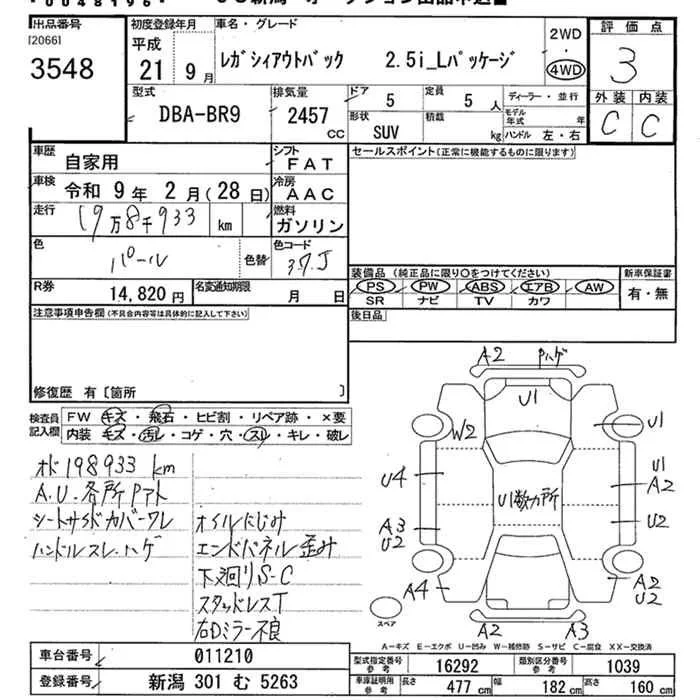 出品番号
[2066]
3548
初度登録年月
平成
21 9月
車名・グレード
レガシィアウトバック 2.5i_Lパッケージ
2WD
・
4WD
評価点
3
外装 内装
C C
型式
DBA-BR9
排気量
2457
CC
ドア
5
定員
5 人
形状
SUV
積載
kg
ディーラー・並行
モデル年式 年
ハンドル 左・右
車歴
自家用
シフト
FAT
車検
令和 9年 2月(28日)
冷房
AAC
走行
19万8千933 km
燃料
ガソリン
色
パール
色替
色コード
37J
R券
14,820円
名変通知期限
月 日
セールスポイント(正常に機能するものに限ります)
装備品 (純正品に限り○をつけてください)
PS PW ABS エアB AW
SR ナビ TV カワ
新車保証書
有・無
後日品
注意事項申告欄(不具合内容等は具体的に記入して下さい)
修復歴 有〔箇所 〕
検査員
記入欄
FW キズ・飛石・ヒビ割・リペア跡・×要
内装 キズ・汚レ・コゲ・穴・スレ・キレ・破レ
オド198933 km
A.U.各所Pアト
シートサイドカバーワレ
ハンドルスレ.ハゲ
オイルにじみ
エンドパネル歪み
下廻りS-C
スタッドレスT
右Dミラー不良
A2 Pハゲ
U1
W2
U1
U4
U1
A2
U1数カ所
A3
U2
U2
A4
A2
U2
A2 A3
スペア
A=キズ E=エクボ U=凹み W=補修跡 S=サビ C=腐食 XX=交換済
車台番号
011210
登録番号
新潟 301 む 5263
型式指定番号
参考
16292
類別区分番号
参考
1039
車庫証明用
参考
長さ 477 cm
幅 182 cm
高さ 160 cm